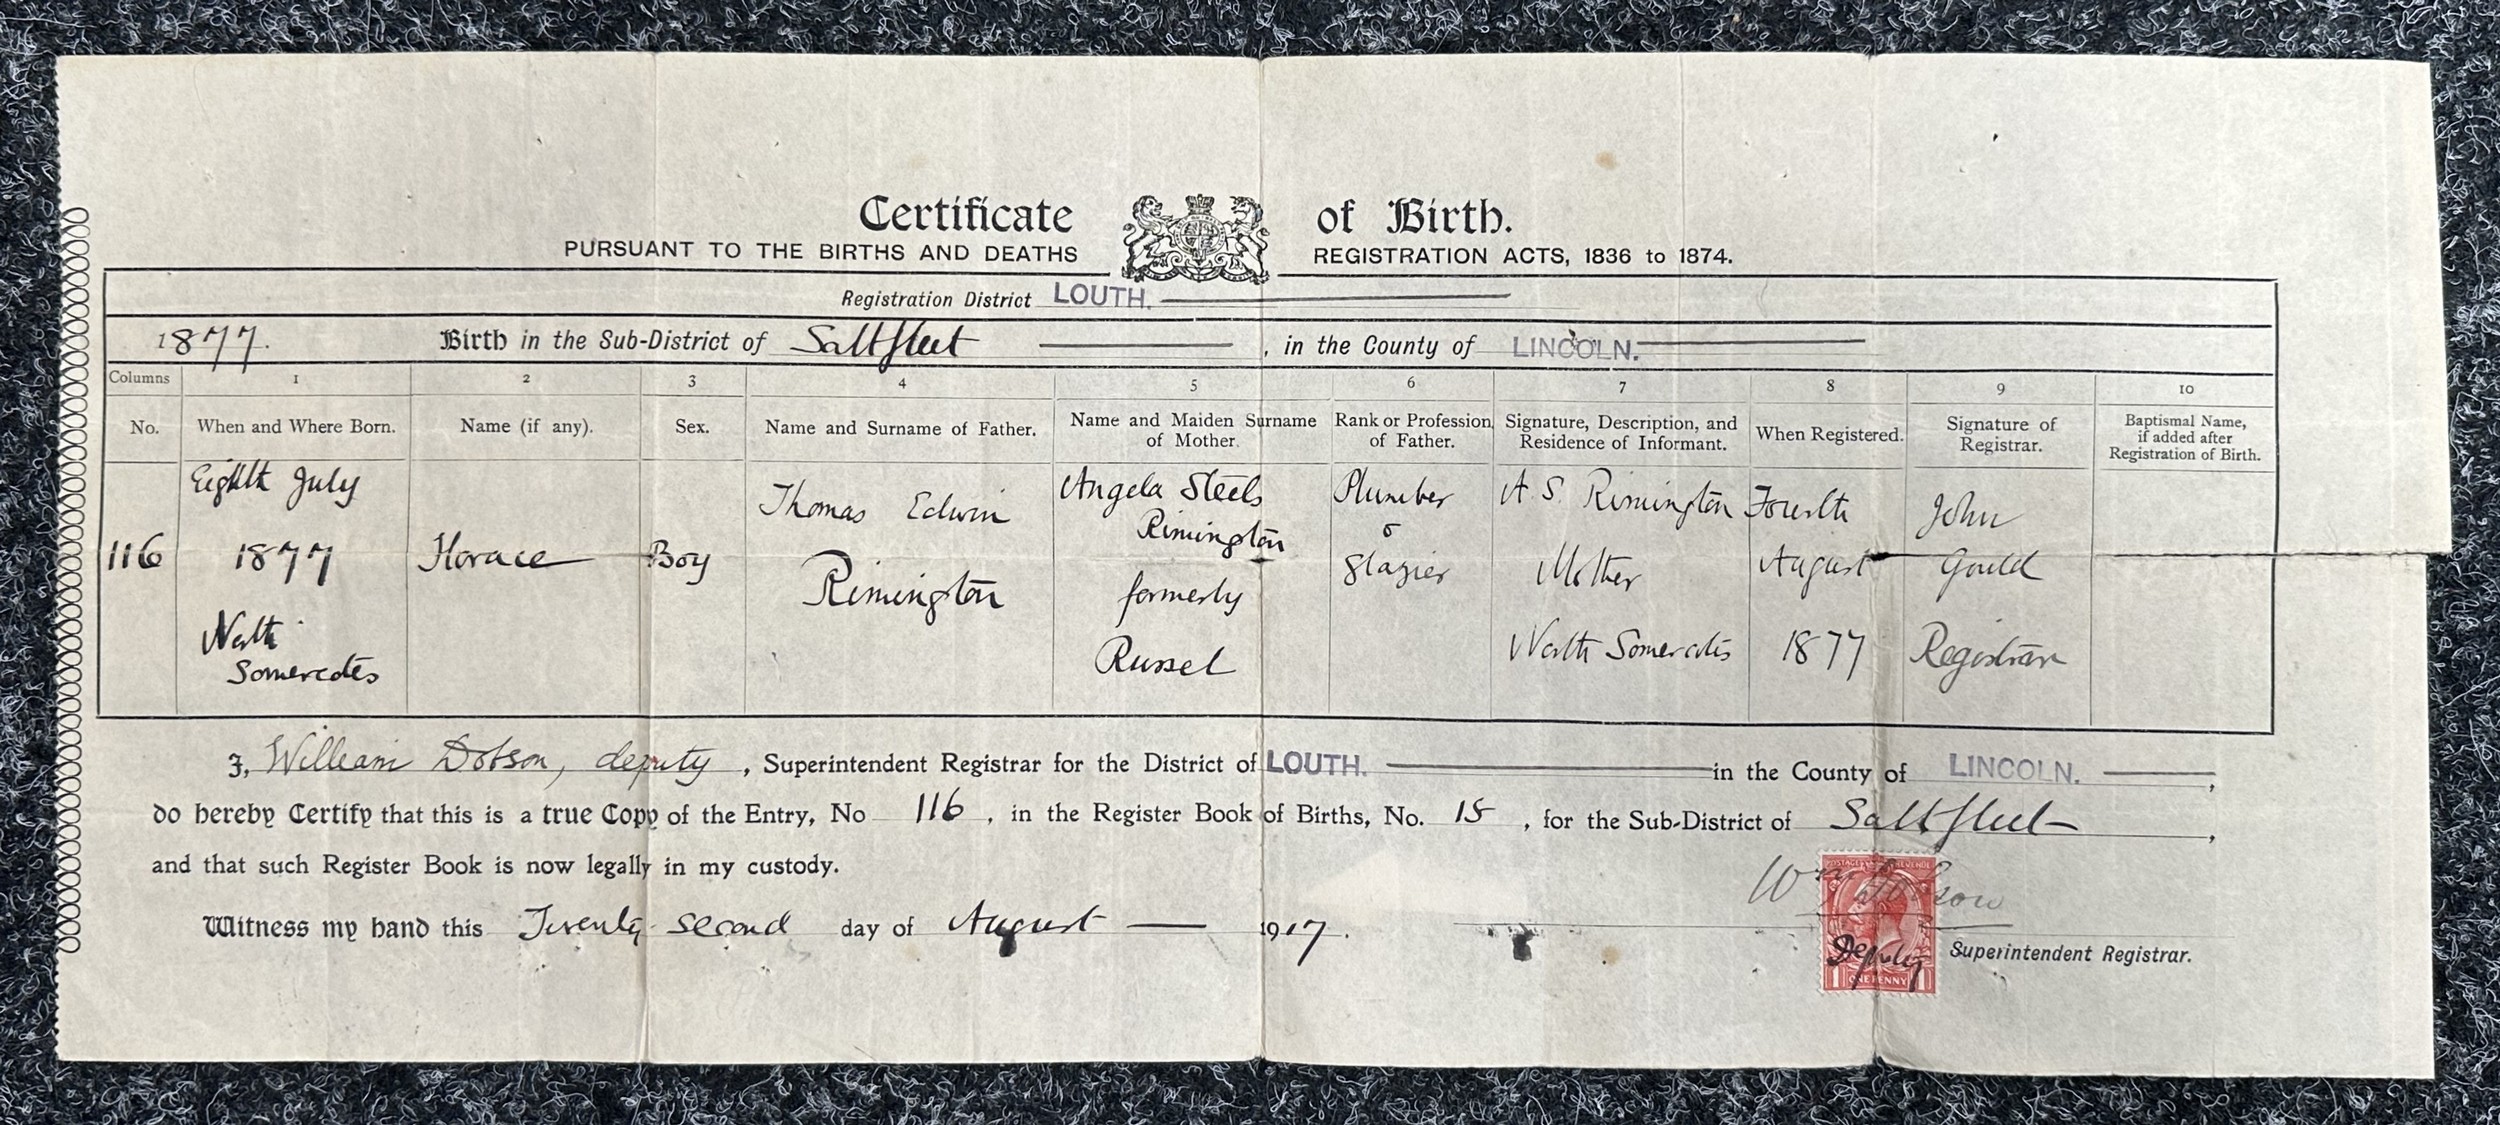 Certificate of Birth.
PURSUANT TO THE BIRTHS AND DEATHS REGISTRATION ACTS, 1836 to 1874.
Registration District LOUTH.
1877. Birth in the Sub-District of Saltfleet, in the County of LINCOLN.
Columns 1 2 3 4 5 6 7 8 9 10
No.
When and Where Born.
Name (if any).
Sex.
Name and Surname of Father.
Name and Maiden Surname
of Mother.
Rank or Profession
of Father.
Signature, Description, and
Residence of Informant.
When Registered.
Signature of
Registrar.
Baptismal Name,
if added after
Registration of Birth.
116
Eighth July
1877
North
Somercotes
Horace
Boy
Thomas Edwin
Rimington
Angela Steels
Rimington
formerly
Russel
Plumber
&
Glazier
A. S. Rimington
Mother
North Somercotes
Fourth
August
1877
John
Gould
Registrar
I, William Dobson, deputy, Superintendent Registrar for the District of LOUTH. in the County of LINCOLN.,
do hereby Certify that this is a true Copy of the Entry, No 116, in the Register Book of Births, No. 15, for the Sub-District of Saltfleet,
and that such Register Book is now legally in my custody.
Witness my hand this Twenty second day of August 1917.
Wm Dobson
Deputy Superintendent Registrar.
POSTAGE REVENUE
1 ONE PENNY 1